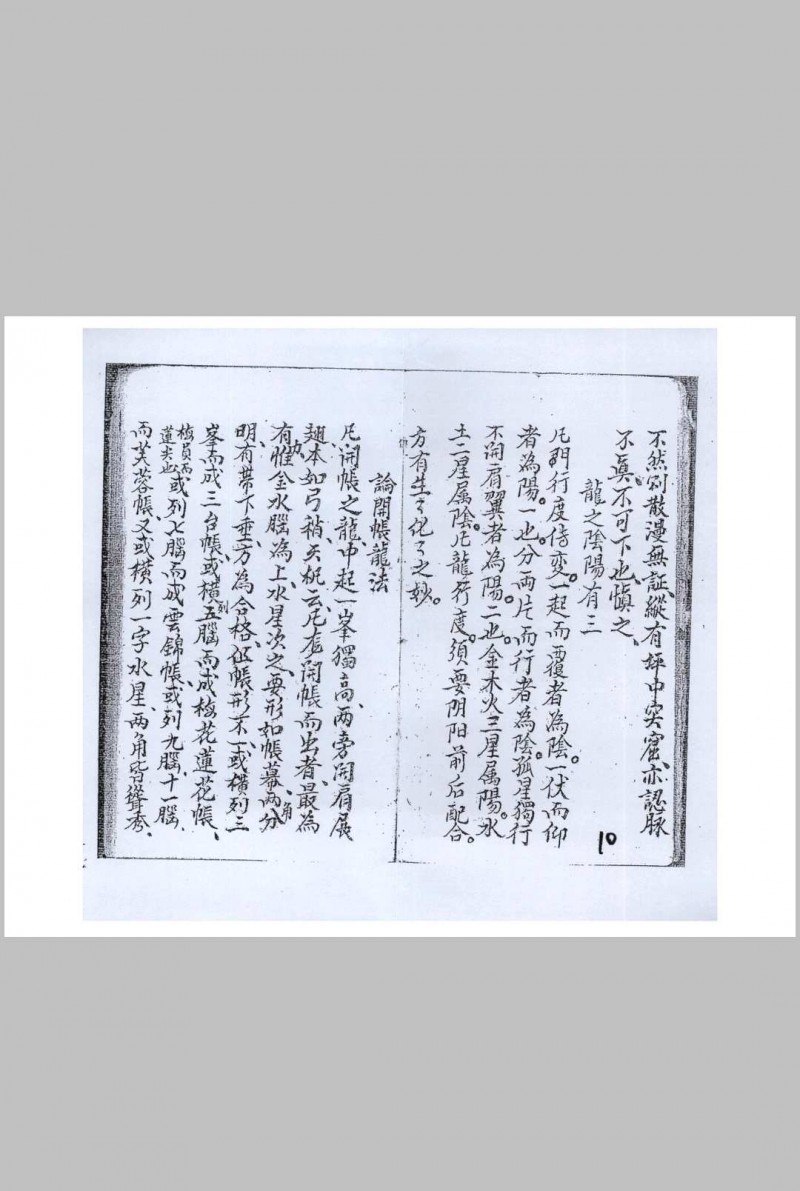 不然則散漫無証、縱有坪中突窟、亦認脉
不真。不可下也、慎之、
龍之陰陽有三
凡門行度传变。一起而覆者為陰。一伏而仰
者為陽。一也。分兩片而行者為陰。孤星獨行
不開肩翼者為陽。二也。金木火三星属陽。水
土二星属陰。凡龍行度。须要阴阳前后配合。
方有生々化々之妙。
論開帳龍法
凡開帳之龍、中起一峯獨高、兩旁開肩展
翅、本如弓稍、天机云、凡龙開帳而出者、最為
有力、惟金水腦為上、水星次之、要形如帳幕、兩角分
明、有帶下垂、方為合格、但帳形不一、或橫列三
峯而成三台帳、或橫列五腦而成梅花蓮花帳、
梅員而蓮尖也、或列七腦而成雲錦帳、或列九腦、十一腦、
而芙蓉帳、又或横列一字水星、两角皆聳秀、
10